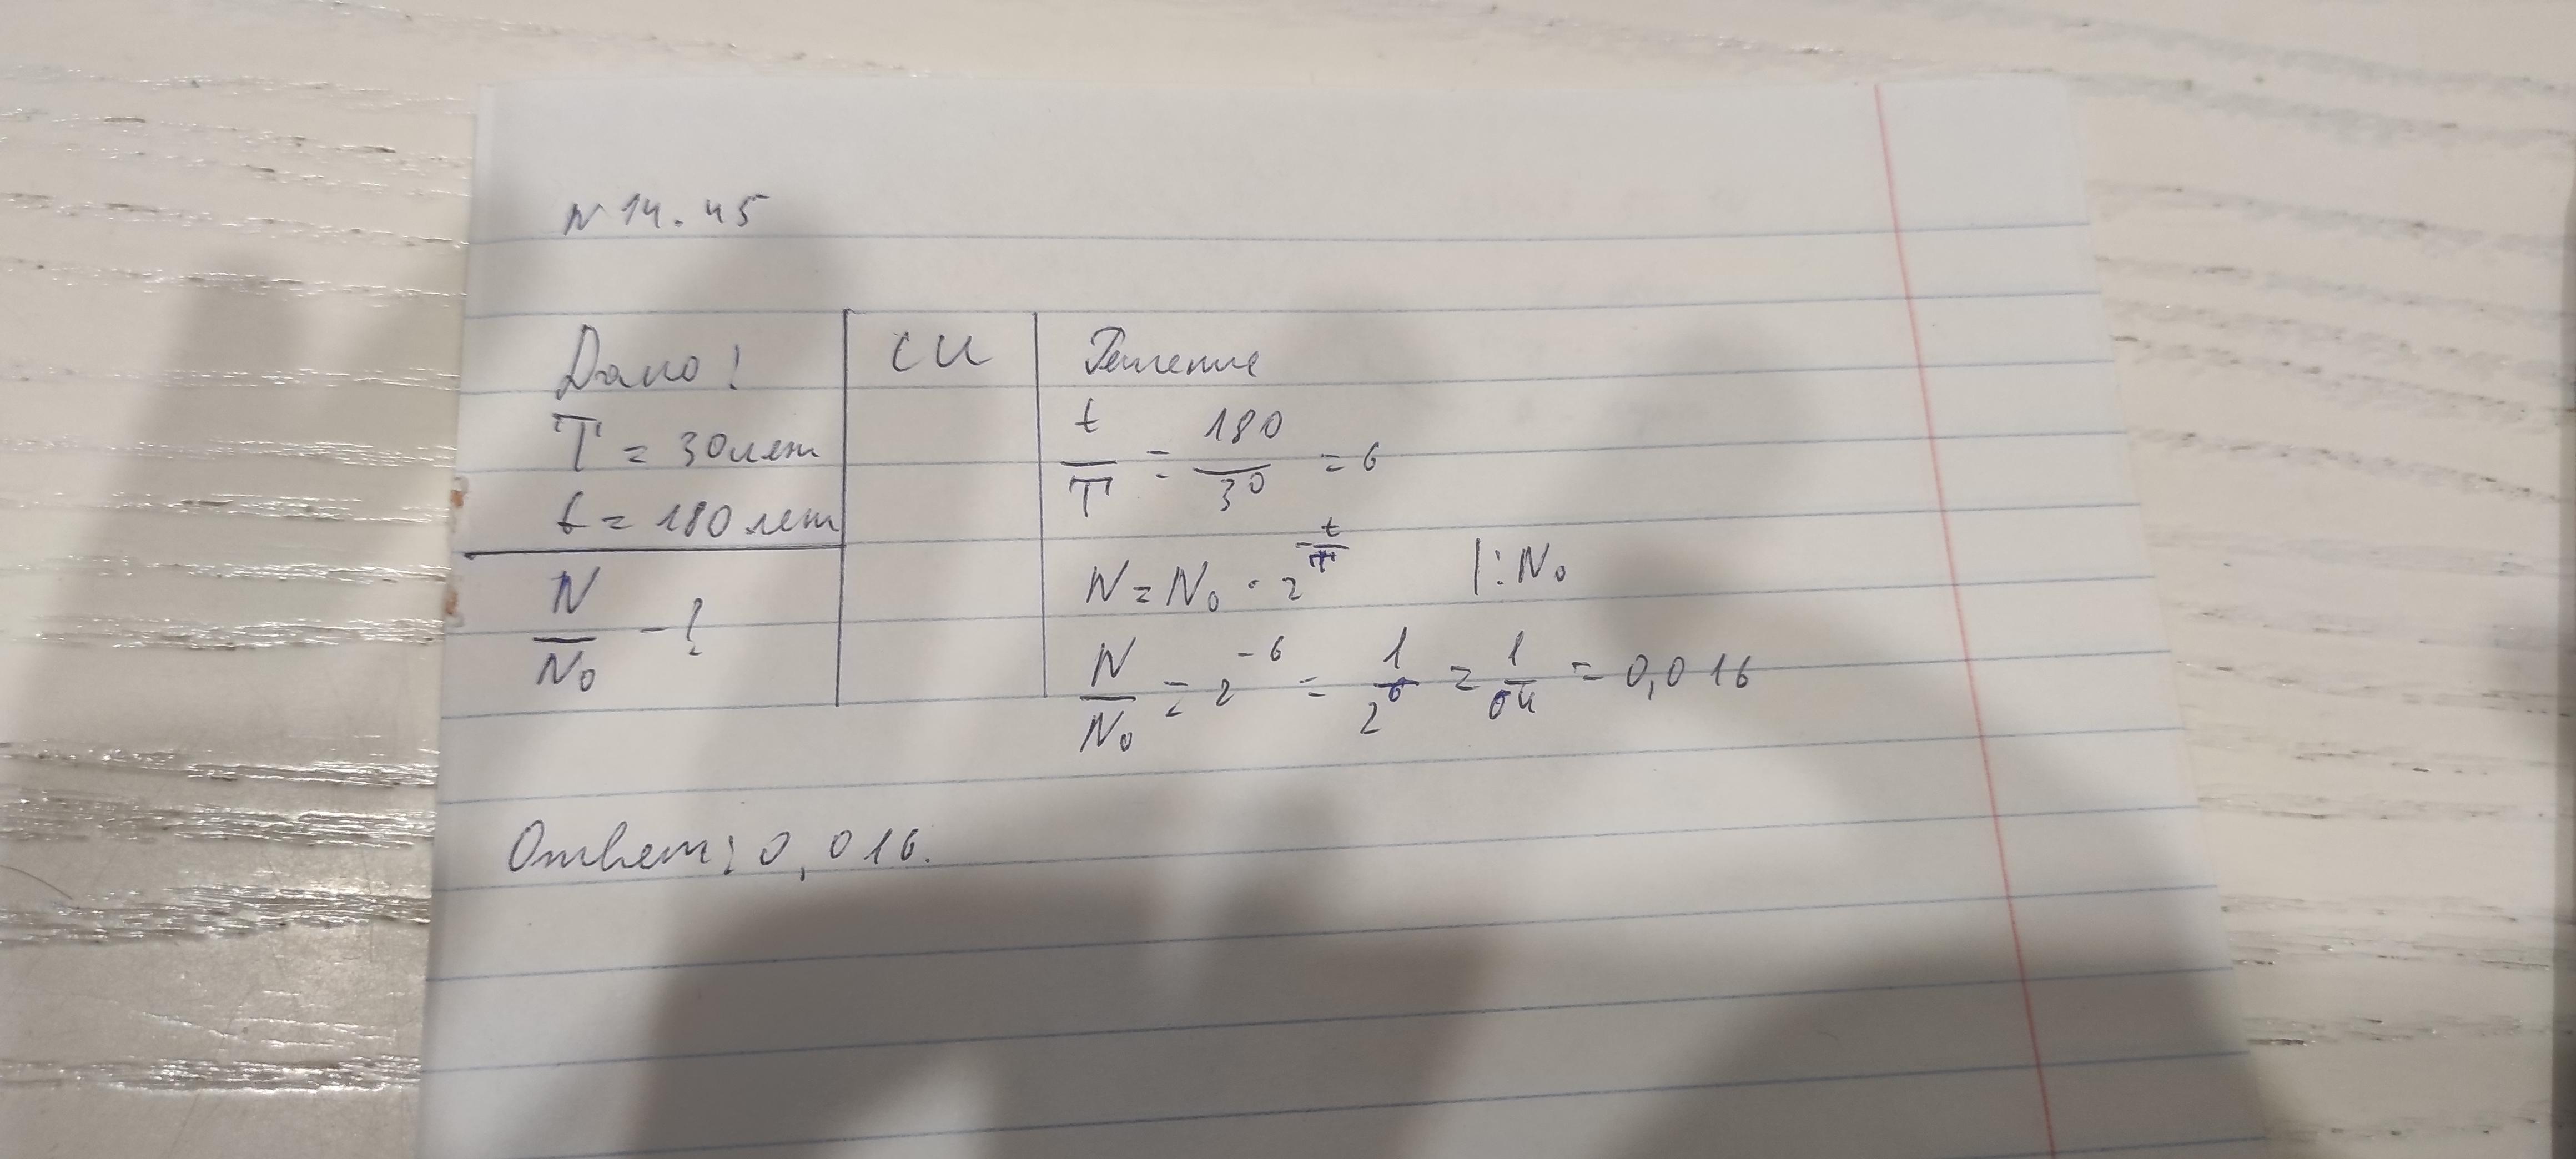 N 14.45
Дано:
T = 30 лет
t = 180 лет
N/N₀ - ?
СИ
Решение
t/T = 180/30 = 6
N = N₀ · 2^(-t/T) |: N₀
N/N₀ = 2^(-6) = 1/2^6 = 1/64 = 0,016
Ответ: 0,016.